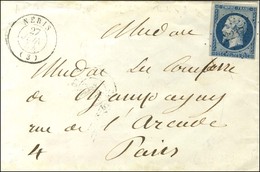 NÉRIS
27
(3)
Madame
Madame La Comtesse
de Champagny
rue de l'Arcade
4 Paris